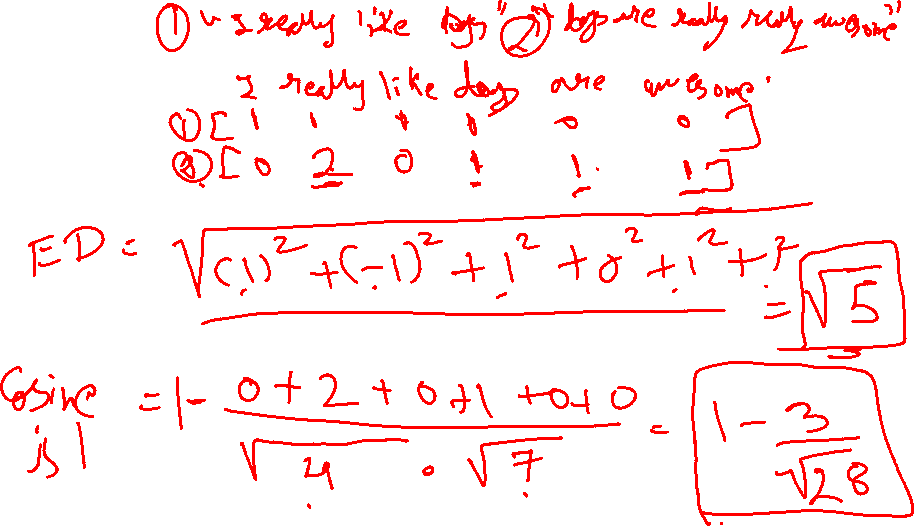 ① "I really like dogs" ② "dogs are really really awesome"
I really like dogs are awesome.
① [ 1 1 1 1 0 0 ]
② [ 0 2 0 1 1 1 ]
ED = √((1)² + (-1)² + 1² + 0² + 1² + 1²) = √5
Cosine = 1 - (0 + 2 + 0 + 1 + 0 + 0) / (√4 · √7) = 1 - 3/√28